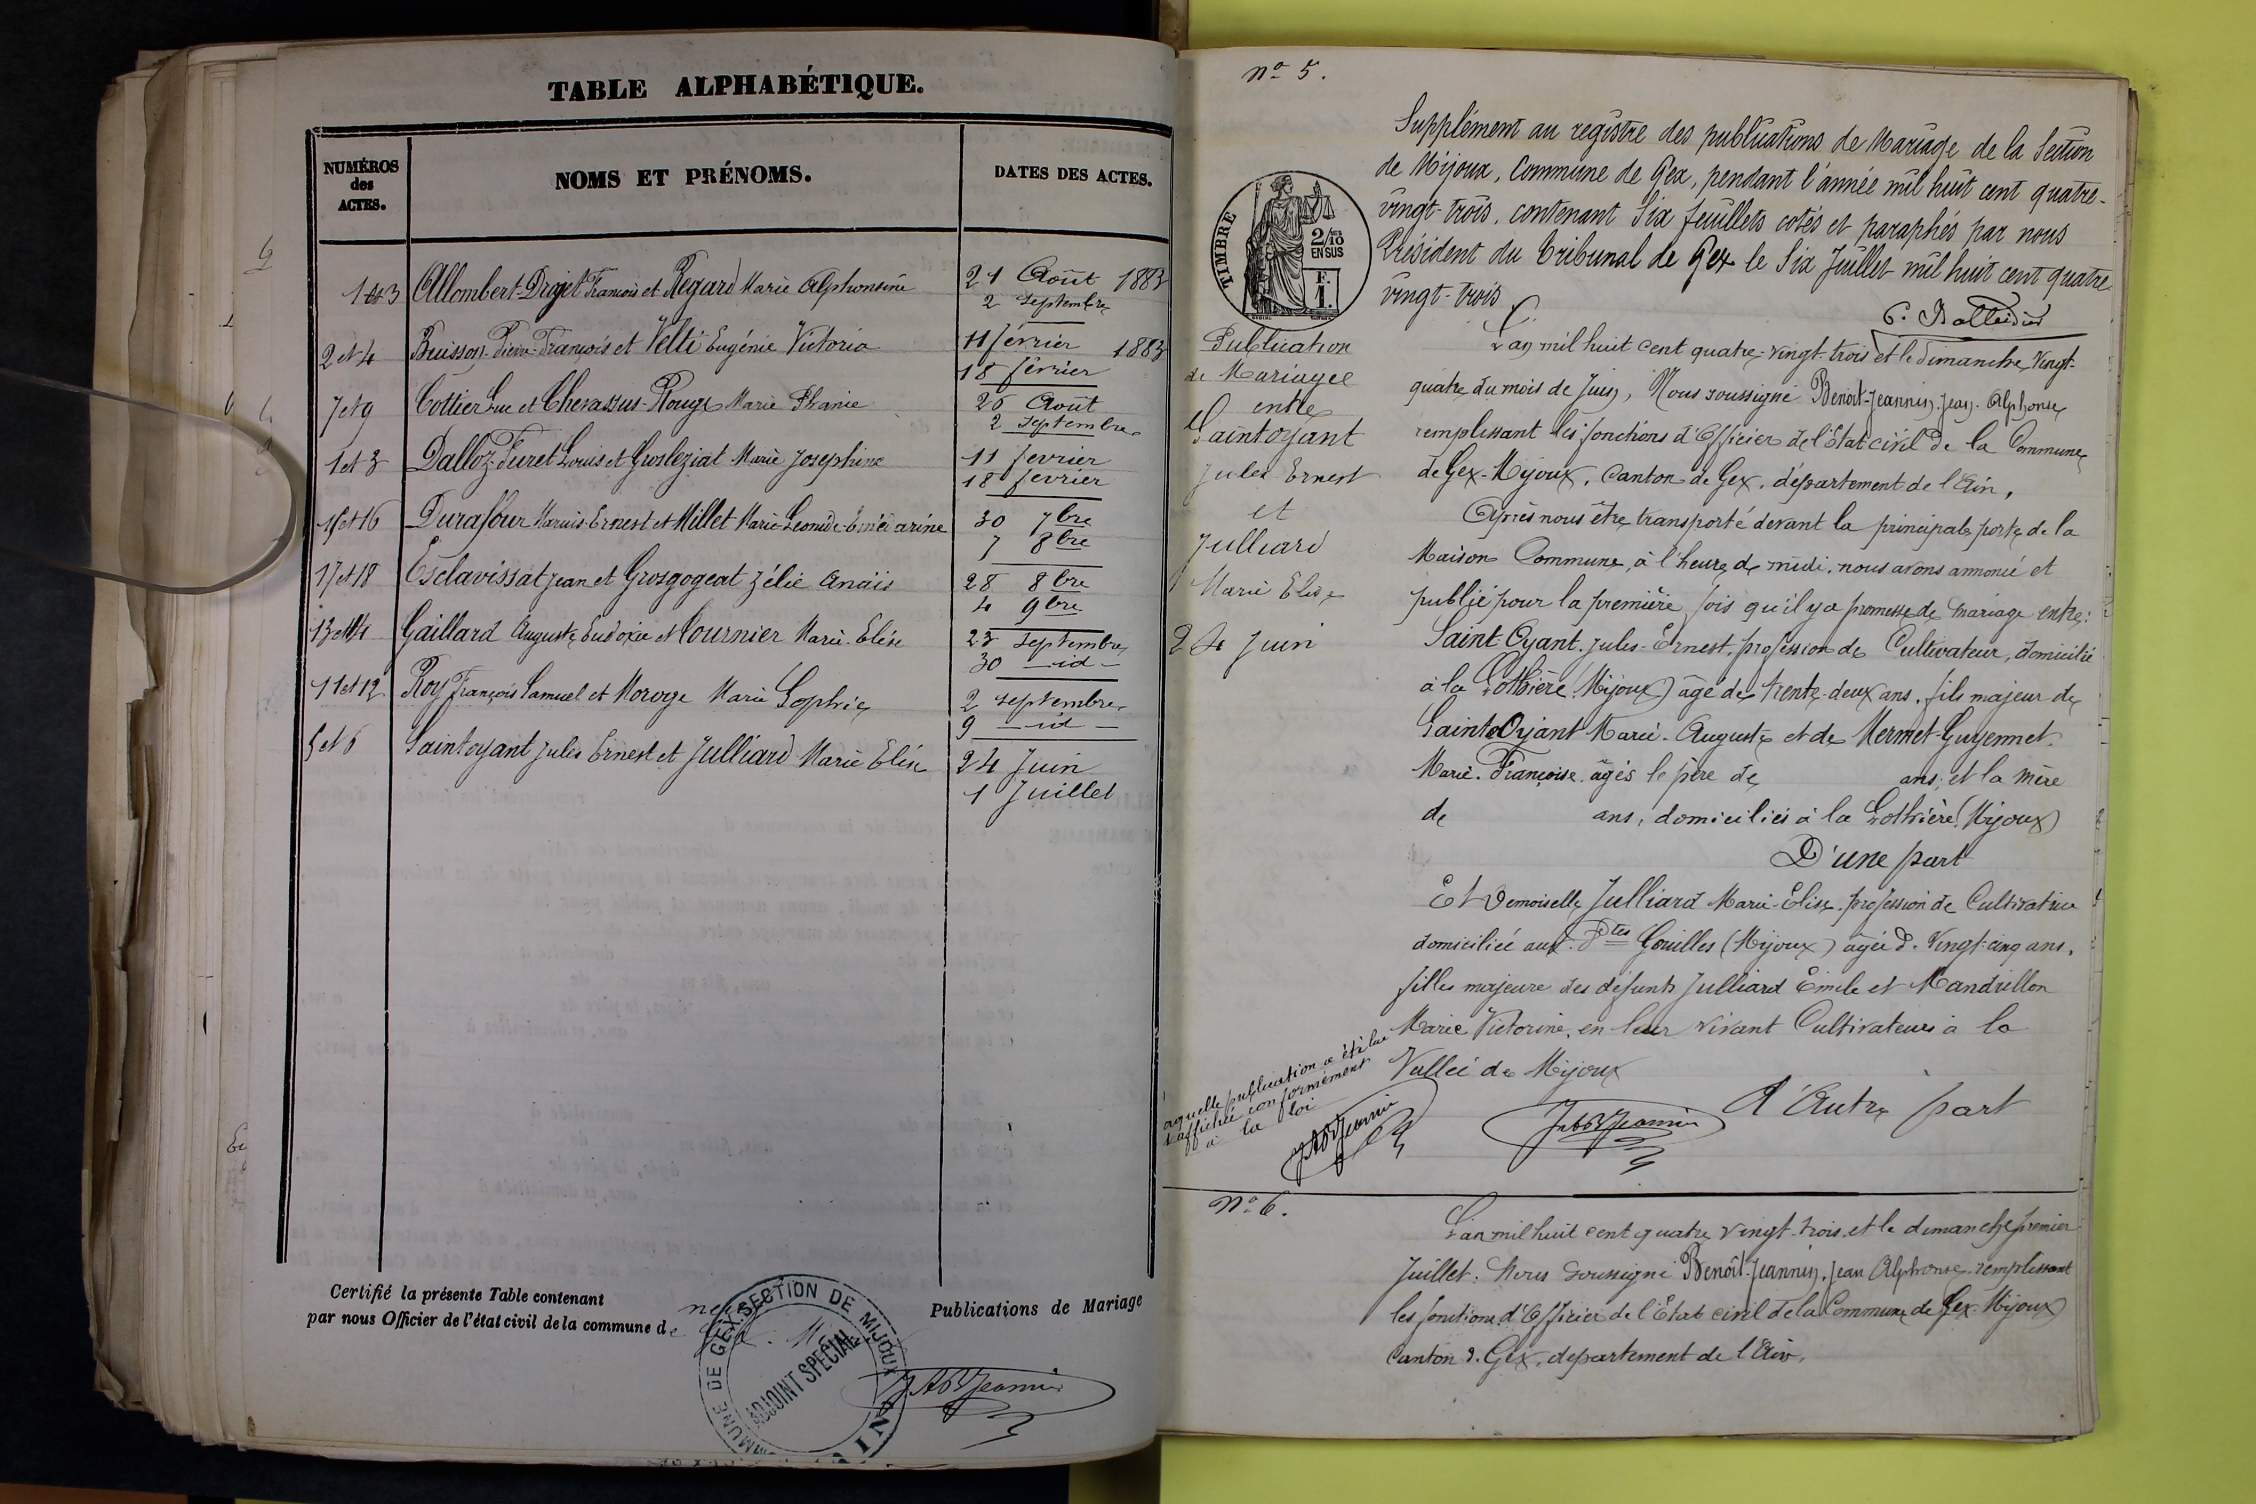 TABLE ALPHABÉTIQUE.
NUMÉROS
des
ACTES.
NOMS ET PRÉNOMS.
DATES DES ACTES.
Allombert-Drojet François et Regard Marie Alphonsine
21 Août 1883
2 Septembre
2 et 4 Buisson Pierre-François et Velli Eugénie Victoria
11 février 1883
18 février
7 et 9 Cottier Luc et Chevassus-Rouge Marie Phanie
26 Août
2 Septembre
1 et 3 Dalloz-Furet Louis et Grosleziat Marie Josephine
11 fevrier
18 fevrier
15 et 16 Durafour Ernest et Millet Marie Leonide
30 7bre
7 8bre
17 et 18 Esclavissat Jean et Grosgogeat Zélie Anaïs
28 8bre
4 9bre
13 et 14 Gaillard Auguste Eudoxie et Cournier Marie-Elise
23 Septembre
30 — id —
11 et 12 Roy François Samuel et Marie Sophie
2 septembre
9 — id —
5 et 6 Saintoyant Jules Ernest et Julliard Marie Elise
24 Juin
1 Juillet
Certifié la présente Table contenant neuf Publications de Mariage
par nous Officier de l'état civil de la commune de
COMMUNE DE GEX. SECTION DE MIJOUX
ADJOINT SPÉCIAL
Nº 5.
Supplément au registre des publications de Mariage de la Section
de Mijoux, Commune de Gex, pendant l'année mil huit cent quatre-
vingt-trois, contenant Six feuillets cotés et paraphés par nous
Président du Tribunal de Gex le Six Juillet mil huit cent quatre
vingt-trois
TIMBRE
2/10
EN SUS
F.
1.
Publication
de Mariage
entre
Saintoyant
Jules Ernest
et
Julliard
Marie Elise
24 Juin
L'an mil huit cent quatre-vingt-trois et le dimanche vingt-
quatre du mois de Juin, Nous soussigné Benoit-Jeannin Jean-Alphonse
remplissant les fonctions d'Officier de l'Etat civil de la Commune
de Gex-Mijoux, Canton de Gex, département de l'Ain,
Après nous être transporté devant la principale porte de la
Maison Commune, à l'heure de midi, nous avons annoncé et
publié pour la première fois qu'il y a promesse de mariage entre:
Saint-Oyant Jules-Ernest, profession de Cultivateur, domicilié
à la (Mijoux) âgé de trente-deux ans, fils majeur de
Saint-Oyant Marie-Auguste et de Mermet-Guyennet
Marie-Françoise, âgés le père de ans, et la mère
de ans, domiciliés à la (Mijoux)
D'une part
Et Demoiselle Julliard Marie-Elise profession de Cultivatrice
domiciliée aux Ptes Gouilles (Mijoux) agée de Vingt-cinq ans,
fille majeure des défunts Julliard Emile et Mandrillon
Marie Victorine, en leur vivant Cultivateurs à la
Vallée de Mijoux
D'Autre part
laquelle publication a été lue
& affichée conformément
à la loi
Nº 6.
L'an mil huit cent quatre vingt-trois et le dimanche premier
Juillet. Nous soussigné Benoît-Jeannin, Jean Alphonse remplissant
les fonctions d'Officier de l'Etat civil de la Commune de Gex-Mijoux
Canton de Gex, departement de l'Ain,